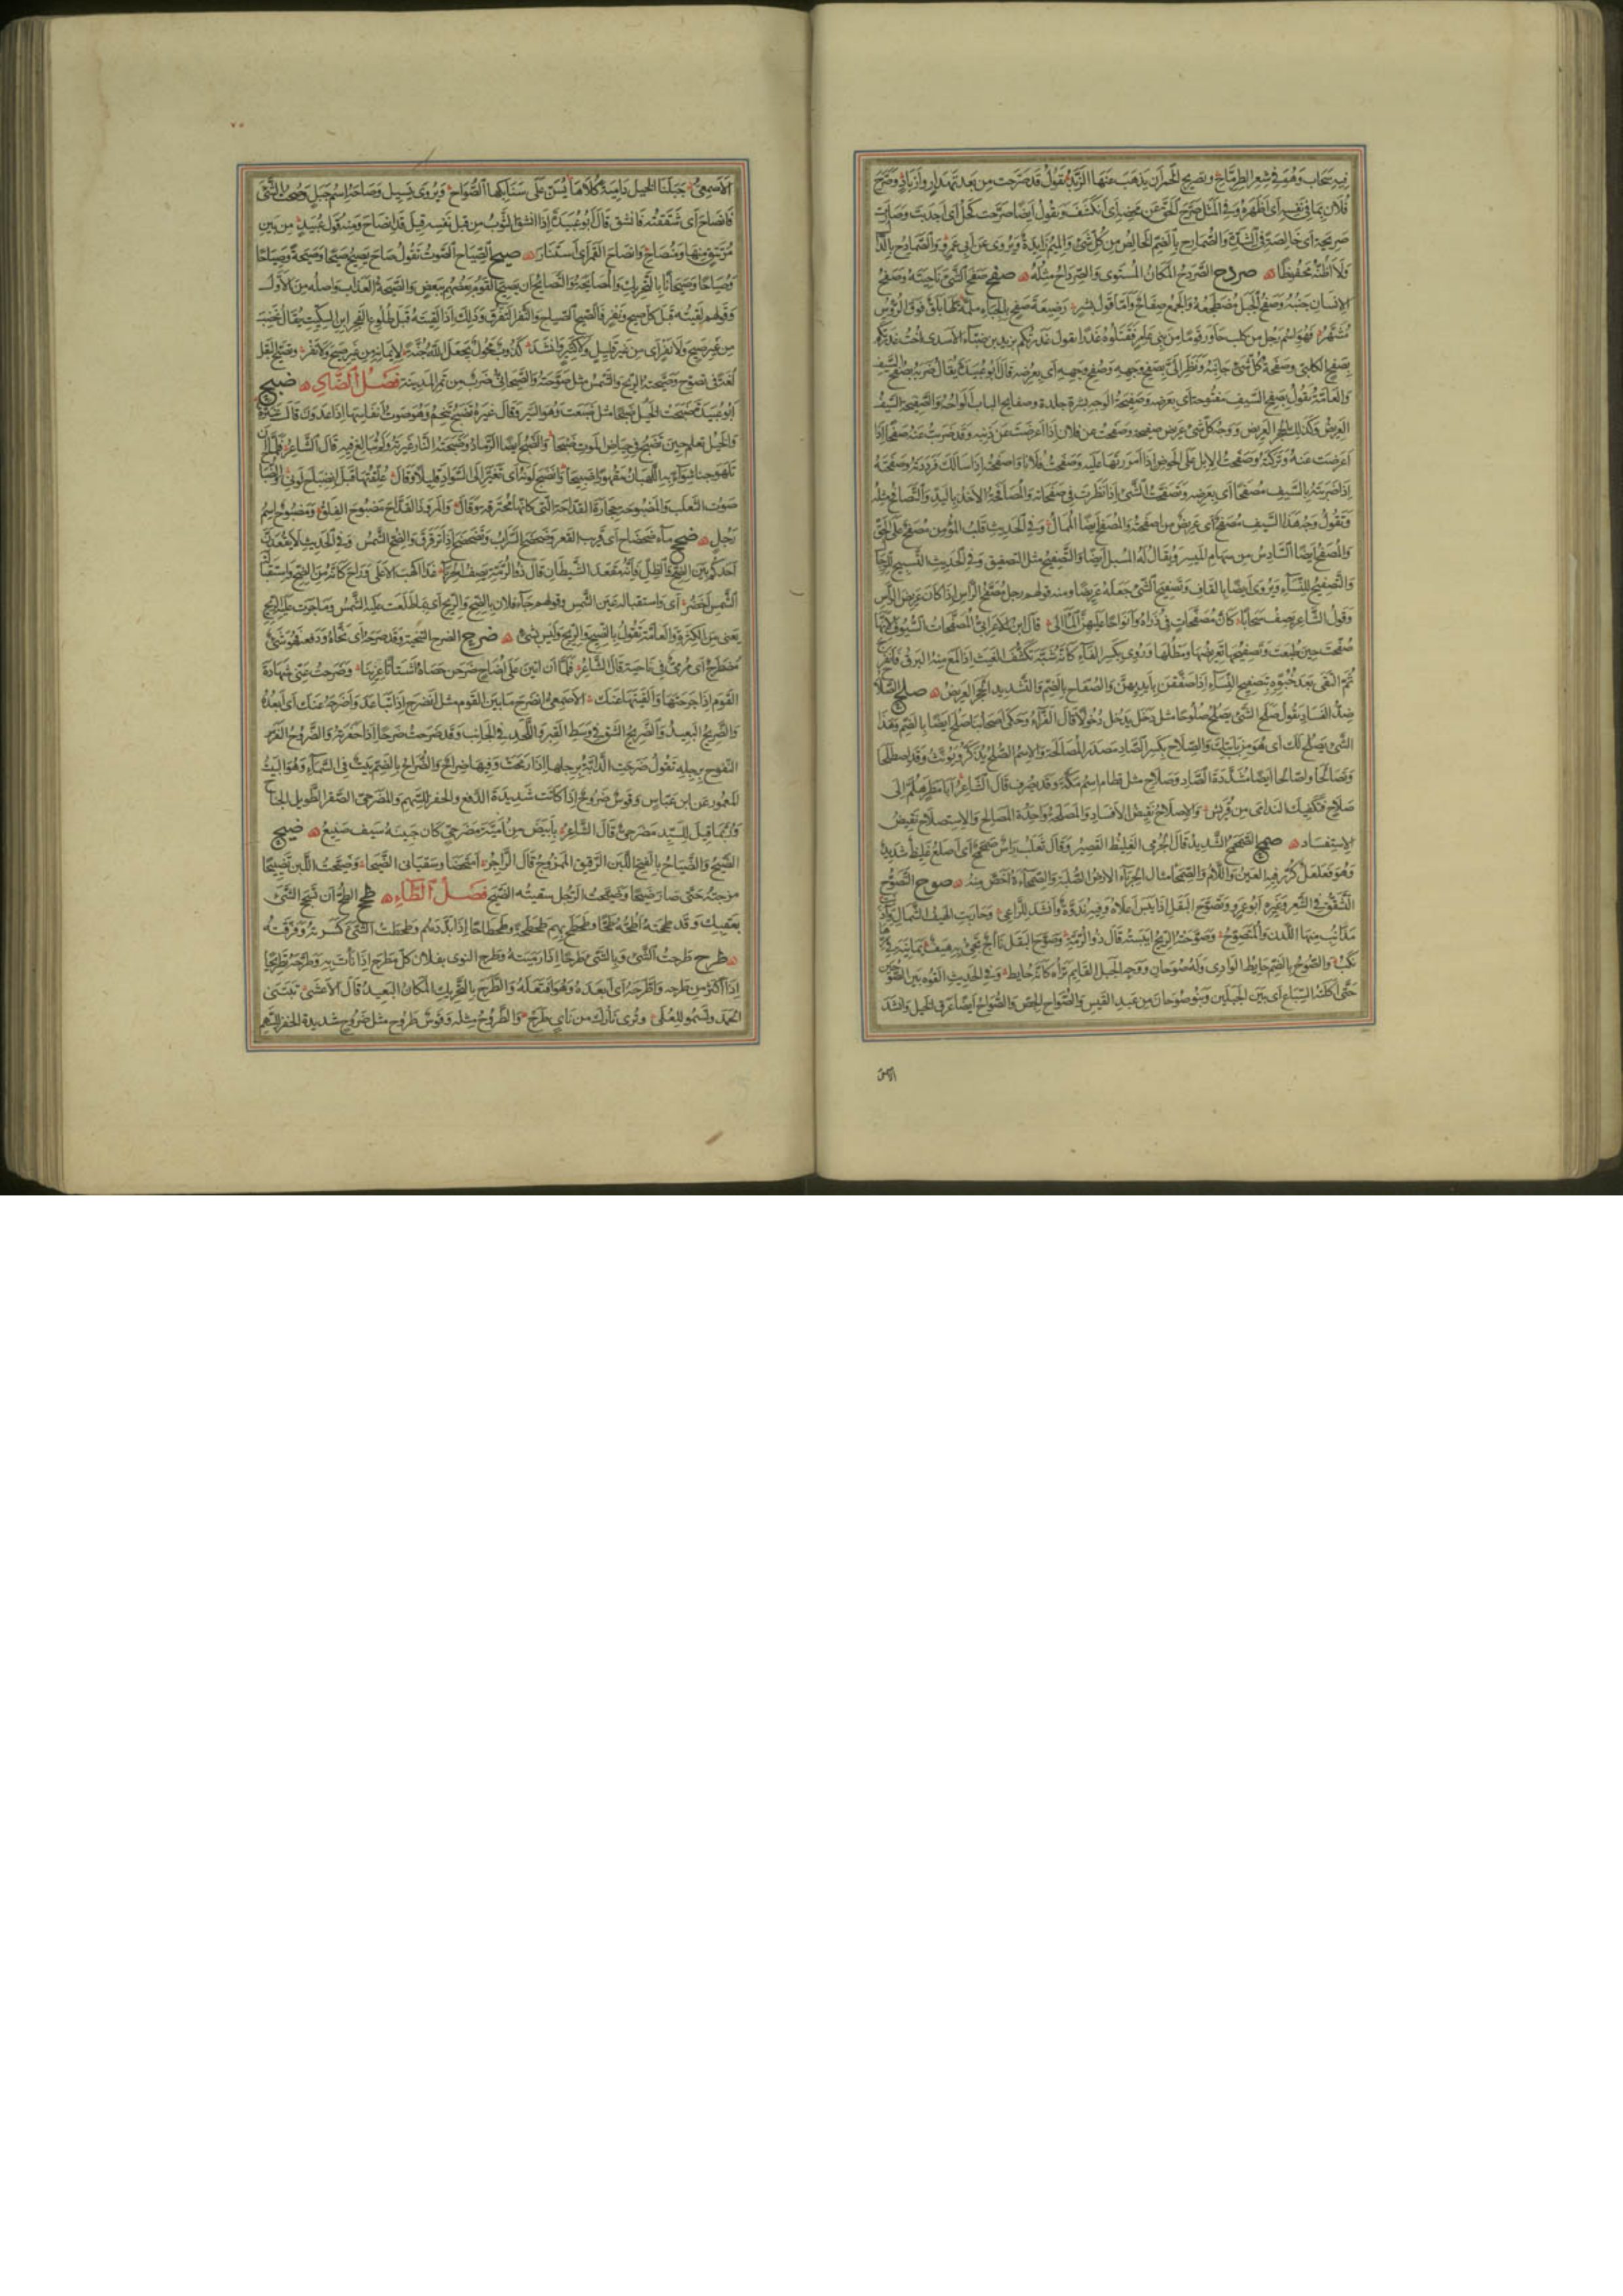 فيه سحاب وهو في شعر الطرماح وتصريح الخمر ان يذهب عنها الزبد تقول قد صرحت من بعد تهدار وازباد وصرح
فلان بما في نفسه اي اظهره وفي المثل صرح الحق عن محضه اي انكشف وتقول ايضا صرحت كحل اي اجدبت وصارت
صريحة اي خالصة في الشدة والصمارح بالضم الخالص من كل شئ والميم زايدة ويروى عن ابي عمرو الصمادح بالدال
ولا اظنه محفوظا صردح الصردح المكان المستوي والصرداح مثله صفح صفح الشئ ناحيته وصفح
الانسان جنبه وصفح الجبل مضطجعه والجمع صفاح واما قول بشر رضيعة صفح بالجباه ملمة لها بلق فوق الرؤس
مشهر فهو اسم رجل من كلب جاور قوما من بني عامر فقتلوه غدرا يقول غدرتكم بزيد بن ضباء الاسدي اخت غدرتكم
بصفح الكلبي وصفحة كل شئ جانبه ونظر الي بصفح وجهه وصفح وجهه اي بعرضه قال ابو عبيدة يقال ضربه بصفح السيف
والعامة تقول بصفح السيف مفتوحة اي بعرضه وصفيحة الوجه بشرة جلده وصفايح الباب الواحه والصفيحة السيف
العريض وكذلك الحجر العريض ووجه كل شئ عريض صفيحة وصفحت عن فلان اذا اعرضت عن ذنبه وقد ضربت عنه صفحا اذا
اعرضت عنه وتركته وصفحت الابل على الحوض اذا امررتها عليه وصفحت فلانا واصفحته اذا سالك فرددته وصفحته
اذا ضربته بالسيف مصفحا اي بعرضه وتصفحت الشئ اذا نظرت في صفحاته والمصافحة الاخذ باليد والتصافح مثله
وتقول وجه هذا السيف مصفح اي عريض من اصفحته والمصفح ايضا الممال وفي الحديث قلب المؤمن مصفح على الحق
والمصفح ايضا السادس من سهام الميسر ويقال له المسبل ايضا والتصفيح مثل التصفيق وفي الحديث التسبيح للرجال
والتصفيح للنساء ويروى ايضا بالقاف وتصفيح الشئ جعله عريضا ومنه قولهم رجل مصفح الراس اذا كان عريض الراس
وقول الشاعر يصف سحابا كان مصفحات في ذراه وانواحا عليهن المآلي قال ابن الاعرابي المصفحات السيوف لانها
صفحت حين طبعت وتصفيحها تعريضها ومطلها وروى بكسر الفاء كانه شبه تكشف الغيث اذا لمع منه البرق فانفرج
ثم التقى بعد خبوه بتصفيح النساء اذا صفقن بايديهن والصفاح بالضم والتشديد الحجر العريض صلح الصلاح
ضد الفساد تقول صلح الشئ يصلح صلوحا مثل دخل يدخل دخولا قال الفراء وحكى اصحابنا صلح ايضا بالضم وهذا
الشئ يصلح لك اي هو من بابتك والصلاح بكسر الصاد مصدر المصالحة والاسم الصلح يذكر ويونث وقد اصطلحا
وتصالحا واصالحا ايضا مشددة الصاد وصلاح مثل قطام اسم مكة وقد يصرف قال الشاعر ابا مطر هلم الى
صلاح فتكفيك الندامى من قريش والاصلاح نقيض الافساد والمصلحة واحدة المصالح والاستصلاح نقيض
الاستفساد صمح الصمحمح الشديد قال الجرمي الغليظ القصير وقال ثعلب راس صمحمح اي اصلع غليظ شديد
وهو فعلعل كرر فيه العين واللام والصمحاء مثال الحرباء الارض الصلبة والصمحاءة اخص منه صوح التصوح
التشقق في الشعر وغيره ابو عمرو وتصوح البقل اذا يبس اعلاه وفيه ندوة وانشد للراعي وحاربت الهيف الشمال وآذنت
مذانب منها اللدن والمتصوح وصوحته الريح ايبسته قال ذو الرمة وصوح البقل نآج تجئ به هيف يمانية في مرها
نكب والصوح بالضم حايط الوادي وله صوحان ووجه الجبل القايم تراه كانه حايط وفي الحديث القوه بين الصوحين
حتى اكلته السباع اي بين الجبلين وبنو صوحان من عبد القيس والصواح الجص والصواح ايضا عرق الخيل وانشد
الاصمعي
الاصمعي جلبنا الخيل دامية كلاها يسن على سنابكها الصواح ويروى يسيل وصاحة اسم جبل وصحت الشئ
فانصاح اي شققته فانشق قال ابو عبيدة اذا انشق الثوب من قبل نفسه قيل قد انصاح ومنه قول عبيد من بين
مرتتق منها ومنصاح وانصاح القمر اي استنار صيح الصياح الصوت تقول صاح يصيح صيحا وصيحة وصياحا
وصياحا وصيحانا بالتحريك والمصايحة والتصايح ان يصيح القوم بعضهم ببعض والصيحة العذاب واصله من الاول
وقولهم لقيته قبل كل صيح ونفر فالصيح الصياح والنفر التفرق وذلك اذا لقيته قبل طلوع الفجر ابن السكيت يقال غضب
من غير صيح ولا نفر اي من غير قليل ولا كثير وانشد كذوب محول يجعل الله جنة لايمانه من غير صيح ولا نفر وتصيح البقل
لغة في تصوح وصيحته الريح والشمس مثل صوحته والصيحاني ضرب من تمر المدينة فصل الضاد ضبح
ابو عبيدة ضبحت الخيل ضبحا مثل ضبعت وهو السير وقال غيره تضبح تنحم وهو صوت انفاسها اذا عدون قال عنترة
والخيل تعلم حين تضبح في حياض الموت ضبحا والضبح ايضا الرماد وضبحته النار غيرته ولم تبالغ فيه قال الشاعر فلما ان
تلهوجنا شواء به اللهبان مقهورا ضبيحا وانضبح لونه اي تغير الى السواد قليلا وقال علقتها قبل انضباح لوني والضباح
صوت الثعلب والمضبوحة حجارة القداحة التي كانها محترقة وقال والمرو ذا القداح مضبوح الفلق ومضبوح اسم
رجل ضحح ماء ضحضاح اي قريب القعر وضحضح السراب وتضحضح اذا ترقرق والضح الشمس وفي الحديث لا يقعدن
احدكم بين الضح والظل فانه مقعد الشيطان قال ذو الرمة يصف الحرباء غدا اكهب الاعلى وراح كانه من الضح واستقباله
الشمس اخضر اي واستقباله عين الشمس وقولهم جاء فلان بالضح والريح اي بما طلعت عليه الشمس وما جرت عليه الريح
يعني من الكثرة والعامة تقول بالضيح والريح وليس بشئ ضرح الضرح التنحية وقد ضرحه اي نحاه ودفعه فهو شئ
مضطرح اي مرمي في ناحية قال الشاعر فلما ان اتين على اضاح ضرحن حصاه اشتاتا عزينا وضرحت عني شهادة
القوم اذا جرحتها والقيتها عنك الاصمعي انضرح ما بين القوم مثل انضرج اذا تباعد واضرحه عنك اي ابعده
والضريح البعيد والضريح الشق في وسط القبر واللحد في الجانب وقد ضرحت ضرحا اذا حفرته والضروح الفرس
النفوح برجله تقول ضرحت الدابة برجلها اذا رمحت وفيها ضراح والضراح بالضم بيت في السماء وهو البيت
المعمور عن ابن عباس وقوس ضروح اذا كانت شديدة الدفع والحفز للسهم والمضرحي الصقر الطويل الجناح
وربما قيل للسيد مضرحي قال الشاعر بابيض من امية مضرحي كان جبينه سيف صنيع ضيح
الضيح والضياح بالفتح اللبن الرقيق الممزوج قال الراجز امتحضا وسقياني الضيحا وضيحت اللبن تضييحا
مزجته حتى صار ضيحا وضيحت الرجل سقيته الضيح فصل الطاء طحح الطح ان تسحج الشئ
بعقبك وقد طححته اطحه طحا وطحطح بهم طحطحة وطحطاحا اذا بددهم وطحطحت الشئ كسرته وفرقته
طرح طرحت الشئ وبالشئ طرحا اذا رميته وطرح النوى بفلان كل مطرح اذا نأت به وطرحه تطريحا
اذا اكثر من طرحه واطرحه اي ابعده وهو افتعله والطرح بالتحريك المكان البعيد قال الاعشى تبتني
الحمد وتسمو للعلى وترى نارك من ناء طرح والطروح مثله وقوس طروح مثل ضروح شديدة الحفز للسهم